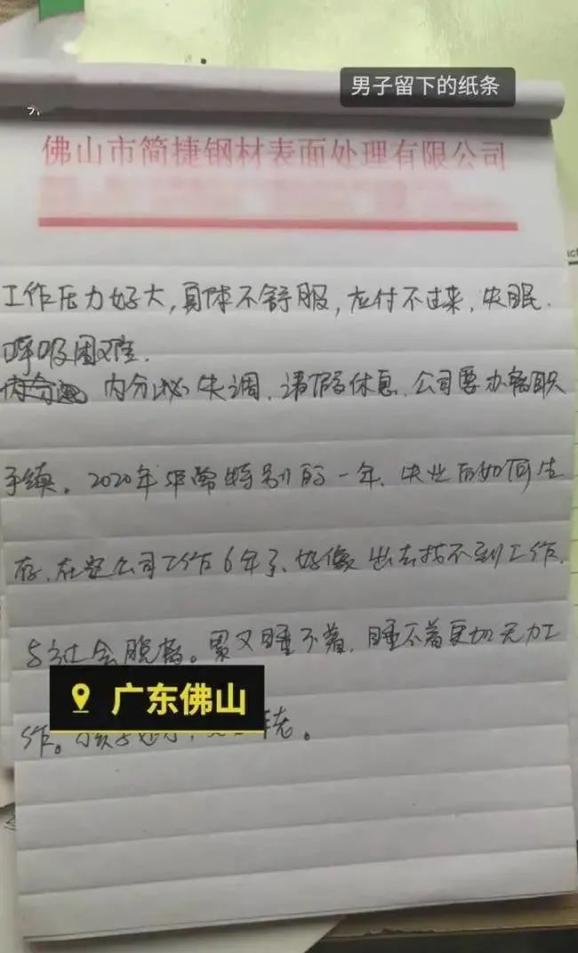 男子留下的纸条
佛山市简捷钢材表面处理有限公司
工作压力好大,身体不舒服,应付不过来,失眠.
呼吸困难.
内分泌失调、请假休息、公司要办离职
手续。2020年非常特别的一年、失业后如何生
存、在这公司工作6年了、好像出去找不到工作.
与社会脱离。累又睡不着,睡不着更加无力工
广东佛山
作。
老。